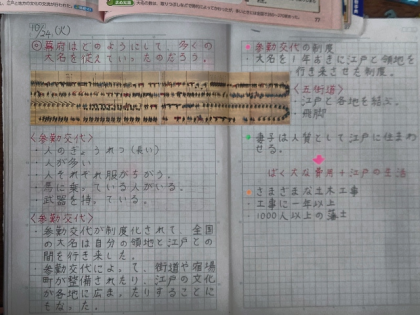 10/24 (火)
め 幕府はどのようにして、多くの
大名を従えていったのだろう。
<参勤交代>
・人のぎょうれつ(長い)
・人が多い
・人それぞれ服がちがう。
・馬に乗っている人がいる。
・武器を持っている。
<参勤交代>
・参勤交代が制度化されて、全国
の大名は自分の領地と江戸との
間を行き来した。
・参勤交代によって、街道や宿場
町が整備されたり、江戸の文化
が各地に広まったりすることに
なった。
参勤交代の制度
大名を1年おきに江戸と領地を
行き来させた制度。
<五街道>
・江戸と各地を結ぶ。
・飛脚
妻子は人質として江戸に住まわ
せる。
ばく大な費用+江戸の生活
さまざまな土木工事
・工事に一年以上
・1000人以上の藩士